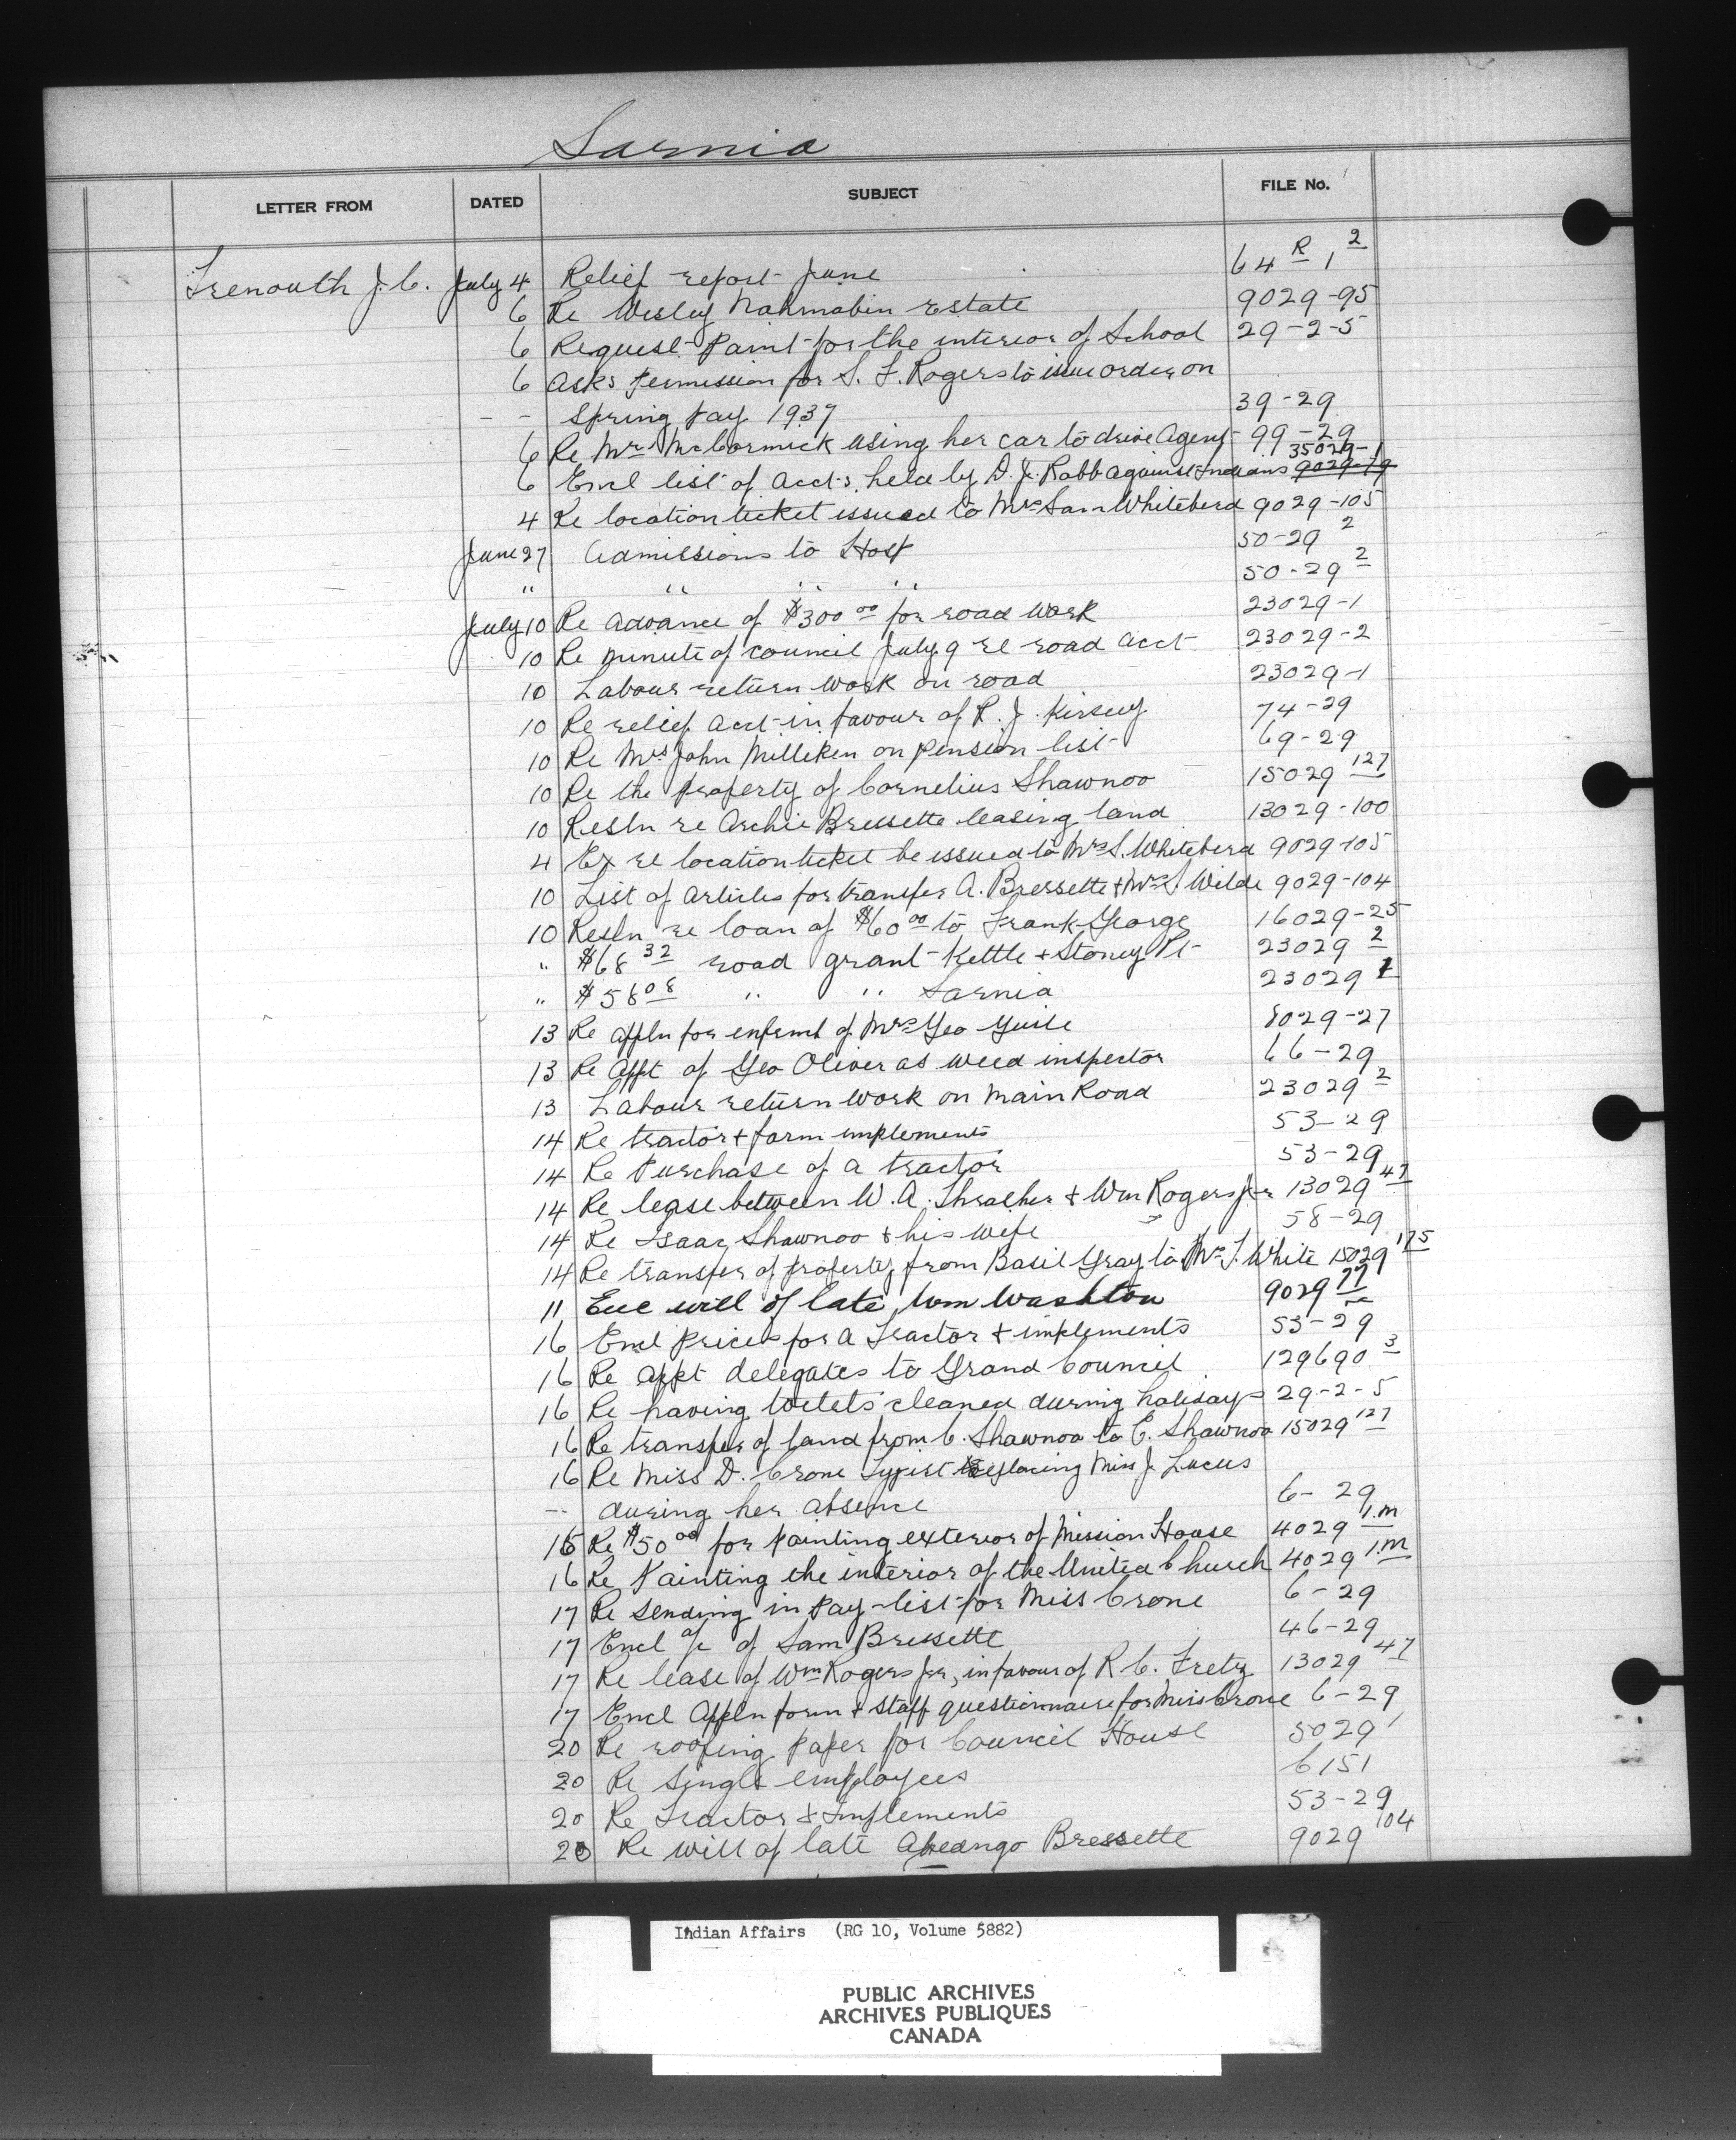 Sarnia
LETTER FROM DATED SUBJECT FILE No.
Trenouth J. C. July 4 Relief report June 64 R 1 2
6 Re Wesley Nahmabin Estate 9029-95
6 Request Paint for the interior of School 29-2-5
6 Asks permission for S. F. Rogers to issue orders on
- - Spring pay 1937 39-29
6 Re Mrs McCormick using her car to drive Agent 99-29
6 Encl list of Accts. held by D. J. Robb against Indians 9029-79 35029-1
4 Re location ticket issued to Mrs Sam Whitebird 9029-105
June 27 Admissions to Hosp 50-29 2
" " " " 50-29 2
July 10 Re advance of $300 00 for road work 23029-1
10 Re minute of council July 9 re road acct 23029-2
10 Labour return work on road 23029-1
10 Re relief acct in favour of R. J. Kirsey 74-29
10 Re Mrs John Milliken on pension list 69-29
10 Re the property of Cornelius Shawnoo 15029 127
10 Resln re Archie Bressette leasing land 13029-100
4 Ex re location ticket be issued to Mrs S. Whitebird 9029-105
10 List of Articles for transfer A. Bressette + Mrs S. Wilde 9029-104
10 Resln re loan of $60 00 to Frank George 16029-25
" $68 32 road grant Kettle + Stoney Pt 23029 2
" $58 08 " " Sarnia 23029 1
13 Re Appln for enfrmt of Mrs Geo 8029-27
13 Re Appt of Geo Oliver as weed inspector 66-29
13 Labour return work on Main Road 23029 2
14 Re tractor + farm implements 53-29
14 Re Purchase of a tractor 53-29
14 Re lease between W. A. Thrasher + Wm Rogers Jr 13029 47
14 Re Isaac Shawnoo + his wife 58-29
14 Re transfer of property from Basil Gray to Mrs J. White 15029 175
11 Enc will of late Wm Washton 9029 77
16 Encl prices for a Tractor + implements 53-29
16 Re appt delegates to Grand Council 129690 3
16 Re having toilets cleaned during holidays 29-2-5
16 Re transfer of land from C. Shawnoo to E. Shawnoo 15029 127
16 Re Miss D. Crone Typist Replacing Miss J. Lucus
-- during her absence 6-29
15 Re $50 00 for painting exterior of Mission House 4029 1.M
16 Re Painting the interior of the United Church 4029 1.M
17 Re sending in Pay-list for Miss Crone 6-29
17 Encl a/c of Sam Bressette 46-29
17 Re lease of Wm Rogers Jr, in favour of R. C. Fretz 13029 47
17 Encl Appln form + staff questionnaire for Miss Crone 6-29
20 Re roofing paper for Council House 5029 1
20 Re single employees 6151
20 Re Tractor & Implements 53-29
20 Re will of late Abeango Bressette 9029 104
Indian Affairs (RG 10, Volume 5882)
PUBLIC ARCHIVES
ARCHIVES PUBLIQUES
CANADA